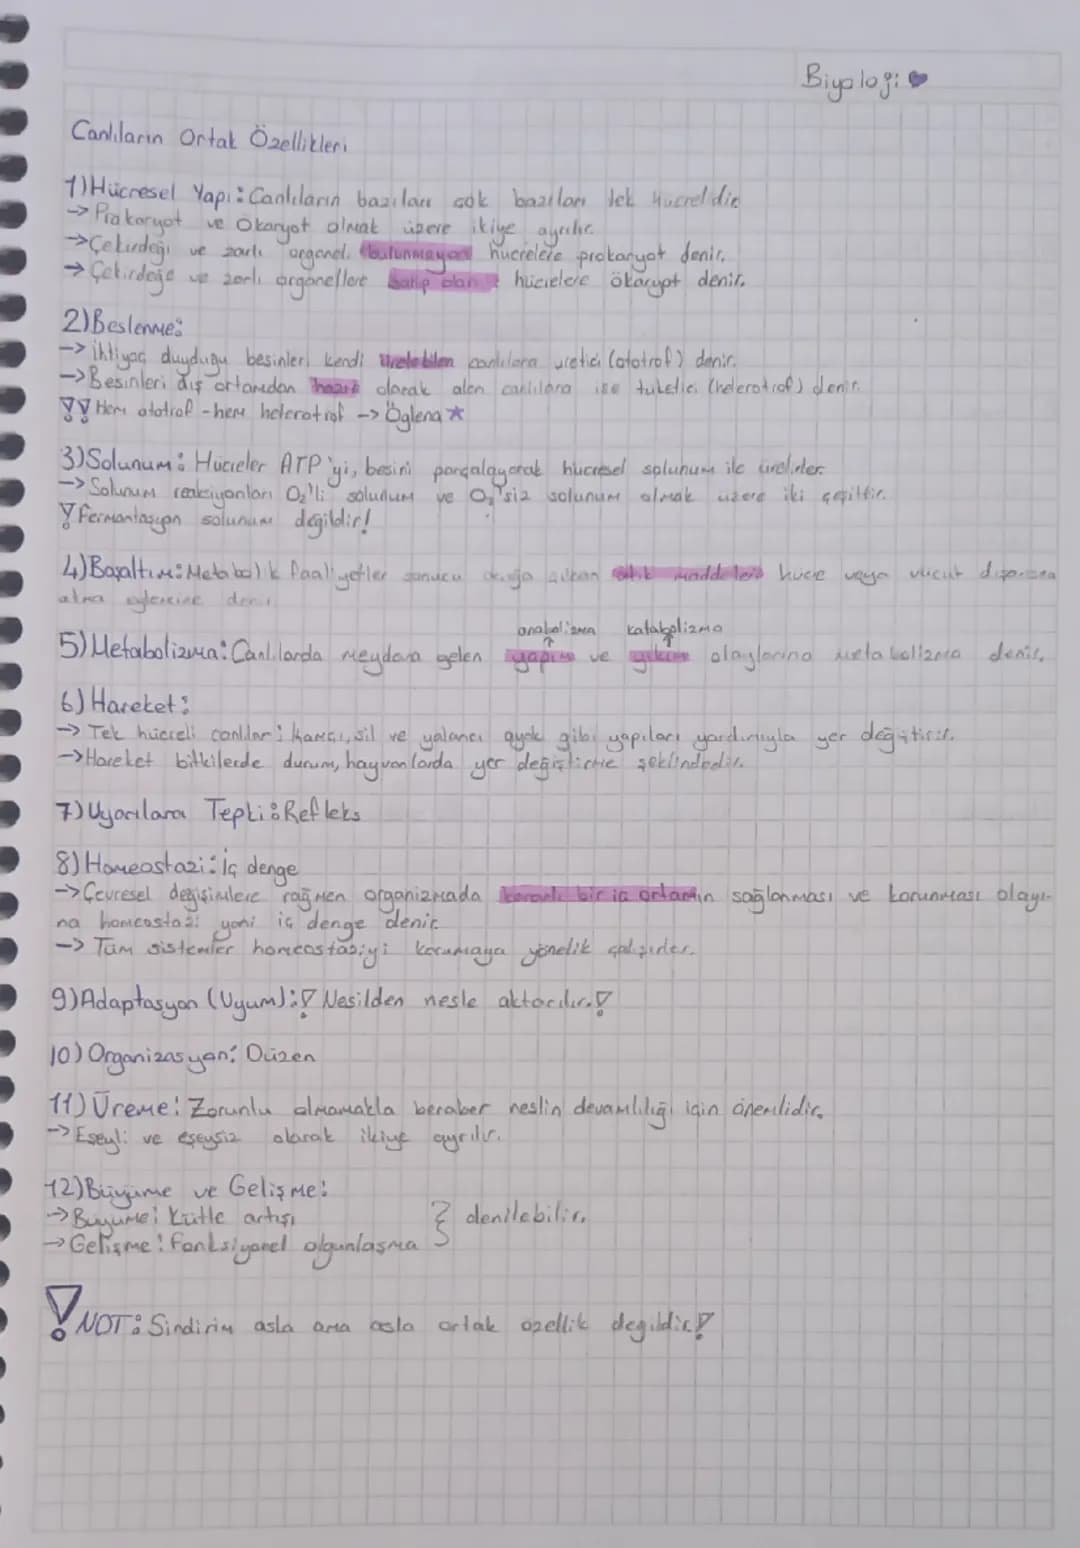 Biyoloji
Canlıların Ortak Özellikleri
1) Hücresel Yapı: Canlıların bazıları çok bazıları tek hücrelidir
-> Prokaryot ve Ökaryot olmak üzere ikiye ayrılır.
-> Çekirdeği ve zarlı organeli bulunmayan hücrelere prokaryot denir.
-> Çekirdeğe ve zarlı organellere sahip olan hücrelere ökaryot denir.
2) Beslenme:
-> İhtiyaç duyduğu besinleri kendi üretebilen canlılara üretici (ototrof) denir.
-> Besinleri dış ortamdan hazır olarak alan canlılara ise tüketici (heterotrof) denir.
Hem ototrof - hem heterotrof -> Öglena ★
3) Solunum: Hücreler ATP'yi, besini parçalayarak hücresel solunum ile üretirler.
-> Solunum reaksiyonları O₂'li solunum ve O₂'siz solunum olmak üzere iki çeşittir.
Fermantasyon solunum değildir!
4) Boşaltım: Metabolik faaliyetler sonucu açığa çıkan atık maddelerin hücre veya vücut dışarısına
atma eylemine denir.
anabolizma katabolizma
5) Metabolizma: Canlılarda meydana gelen yapım ve yıkım olaylarına metabolizma denir.
6) Hareket:
-> Tek hücreli canlılar; kamçı, sil ve yalancı ayak gibi yapıları yardımıyla yer değiştirir.
-> Hareket bitkilerde durum, hayvanlarda yer değiştirme şeklindedir.
7) Uyarılara Tepki: Refleks
8) Homeostazi: İç denge
-> Çevresel değişimlere rağmen organizmada kararlı bir iç ortamın sağlanması ve korunması olayı-
na homeostazi yani iç denge denir.
-> Tüm sistemler homeostaziyi korumaya yönelik çalışırlar.
9) Adaptasyon (Uyum): ! Nesilden nesle aktarılır. !
10) Organizasyon: Düzen
11) Üreme: Zorunlu olmamakla beraber neslin devamlılığı için önemlidir.
-> Eşeyli ve eşeysiz olarak ikiye ayrılır.
12) Büyüme ve Gelişme:
-> Büyüme: Kütle artışı } denilebilir.
-> Gelişme: Fonksiyonel olgunlaşma
! NOT: Sindirim asla ama asla ortak özellik değildir!